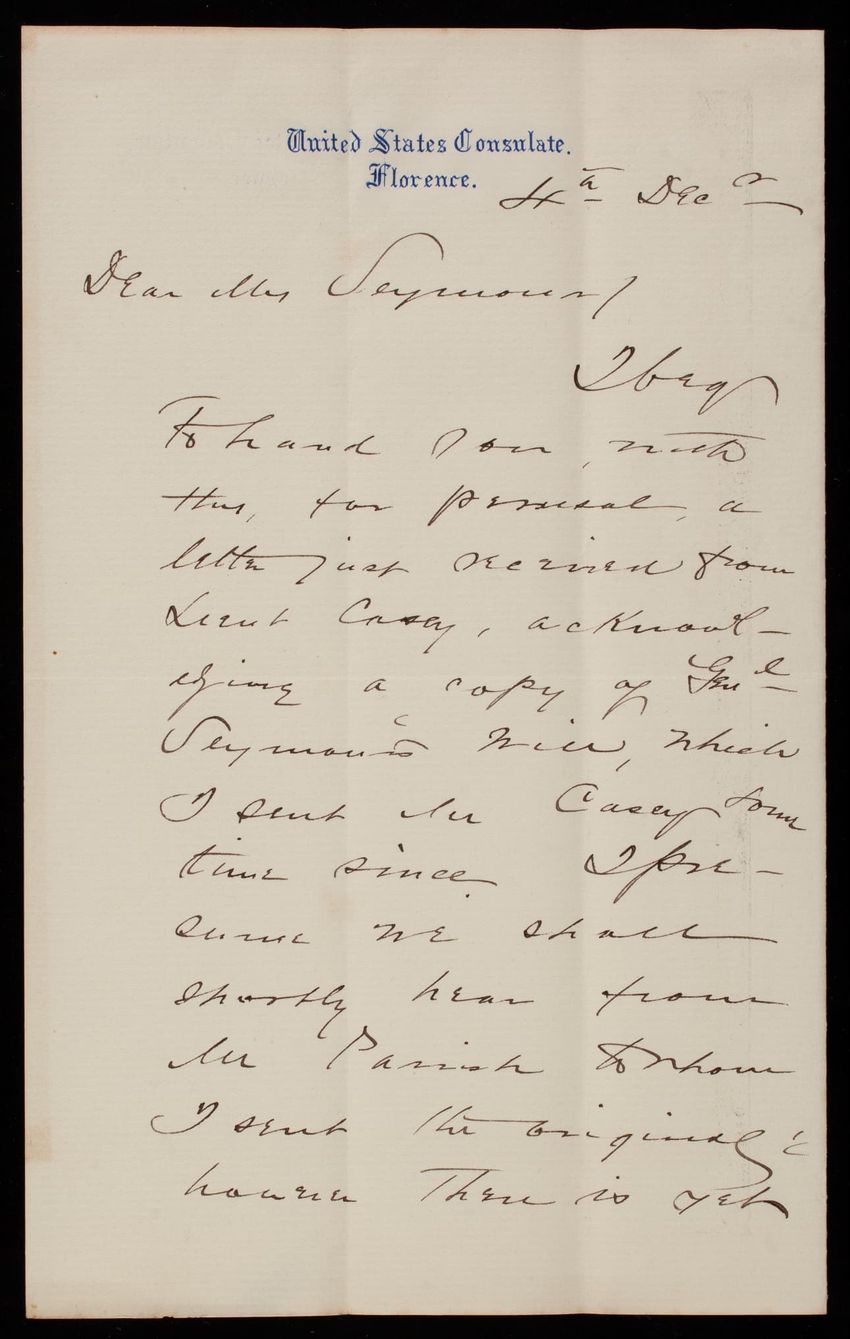 United States Consulate.
Florence.
4th Decr
Dear Mrs Seymour,
I beg
to hand you, with
this, for perusal, a
letter just received from
Lieut Casey, acknowl-
edging a copy of Genl
Seymour's Will, which
I sent Mr Casey some
time since. I pre-
sume we shall
shortly hear from
Mr Parrish to whom
I sent the original;
however there is yet